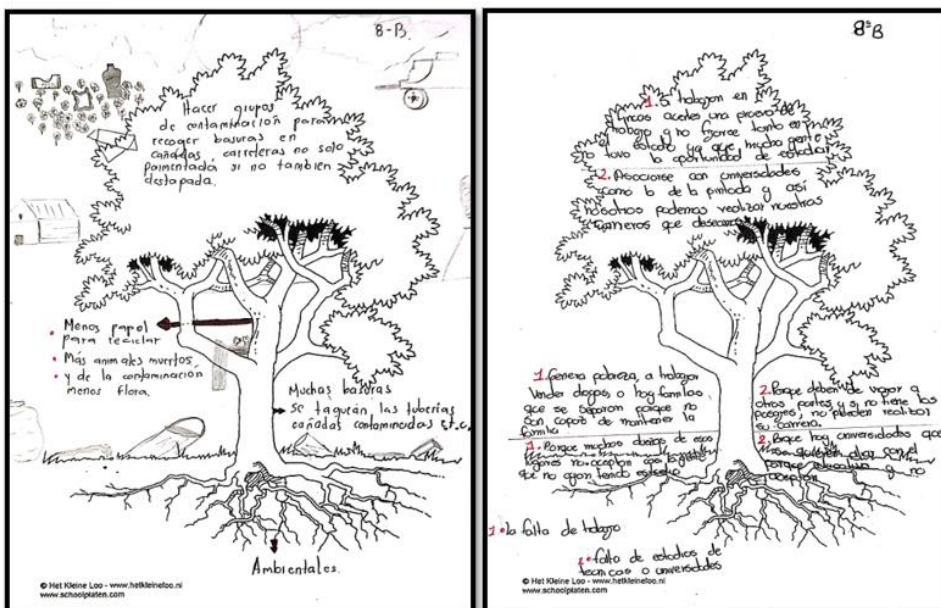 8-B.
Hacer grupos
de contaminación para
recoger basuras en
cañadas, carreteras no solo
paimentada si no tambien
destapada.
• Menos papel
para reciclar
• Más animales muertos
• y de la contaminación
menos flora.
Muchas basuras
se taquean las tuberias
cañadas contaminadas E.t.c.
Ambientales.
© Het Kleine Loo - www.hetkleineloo.nl
www.schoolplaten.com
8ºB
1. Si trabajan en
fincas
una prueba de
trabajo y no fijarse tanto en
el estudio ya que mucha gente
no tuvo la oportunidad de estudiar
2. Asociarse con universidades
como la de la pintada y así
nosotros podemos realizar nuestras
que deseamos
1. Genera pobreza, a trabajar
vender drogas, o hay familias
que se separan porque no
son capas de mantener la
familia
2. Porque deben de viajar a
otras partes y si no tiene los
pasajes, no pueden realizar
su carrera.
1. Porque muchos dueños de esos
lugares no aceptan
que no ayan tenido estudio
2. Porque hay universidades que
porque educativo y no
aceptan
1. la falta de trabajo
2. falta de estudios de
tecnicas o universidades
© Het Kleine Loo - www.hetkleineloo.nl
www.schoolplaten.com